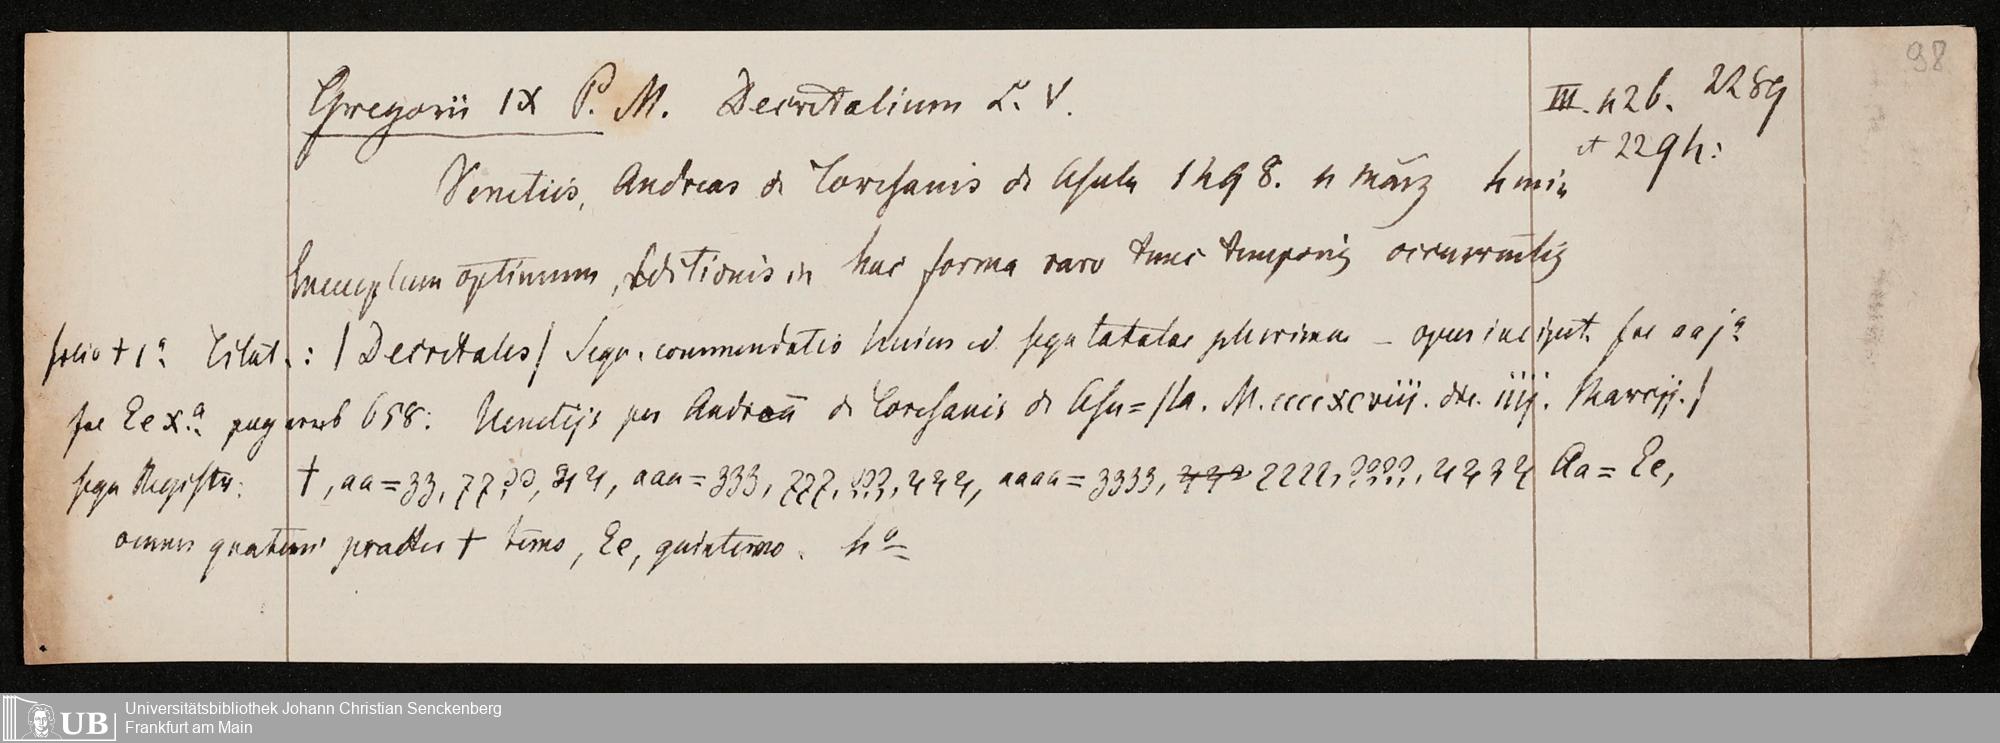 98
Gregorii IX P. M. Decretalium L. V.
III. 426. 2289
et 2294:
Venetiis, Andreas de Toresanis de Asula 1498. 4 März 4 min
Exemplum optimum, Editionis in hac forma raro tunc temporis occurrentis
folio + 1a Titul.: / Decretales / Sequ. commendatio huius ed. sequ tabulae plurimae – opus incipit fol aa ja
fol Ee x.a pag verb 658: Venetijs per Andreā de Toresanis de Asu=/la. M.ccccxcviij. die. iiij. Marcij. /
sequ Registr: +, aa=zz, aaa=zzz, aaaa=zzzz, Aa=Ee,
omnes quaterni praeter + terno, Ee, quinterno. 4o
Universitätsbibliothek Johann Christian Senckenberg
Frankfurt am Main
UB